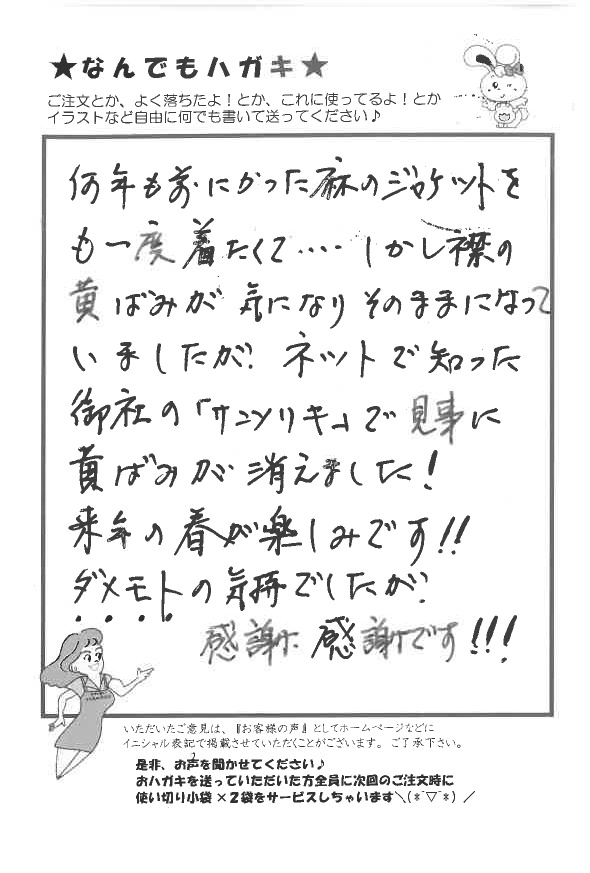 ★なんでもハガキ★
ご注文とか、よく落ちたよ！とか、これに使ってるよ！とか
イラストなど自由に何でも書いて送ってください♪
何年も前にかった麻のジャケットを
も一度着たくて‥‥しかし襟の
黄ばみが気になりそのままになって
いましたが、ネットで知った
御社の「サンソリキ」で見事に
黄ばみが消えました！
来年の春が楽しみです!!
ダメモトの気持でしたが、
感謝に感謝です!!!
いただいたご意見は、『お客様の声』としてホームページなどに
イニシャル表記で掲載させていただくことがございます。ご了承下さい。
是非、お声を聞かせてください♪
おハガキを送っていただいた方全員に次回のご注文時に
使い切り小袋×2袋をサービスしちゃいます＼(*ˊ▽ˋ*)／